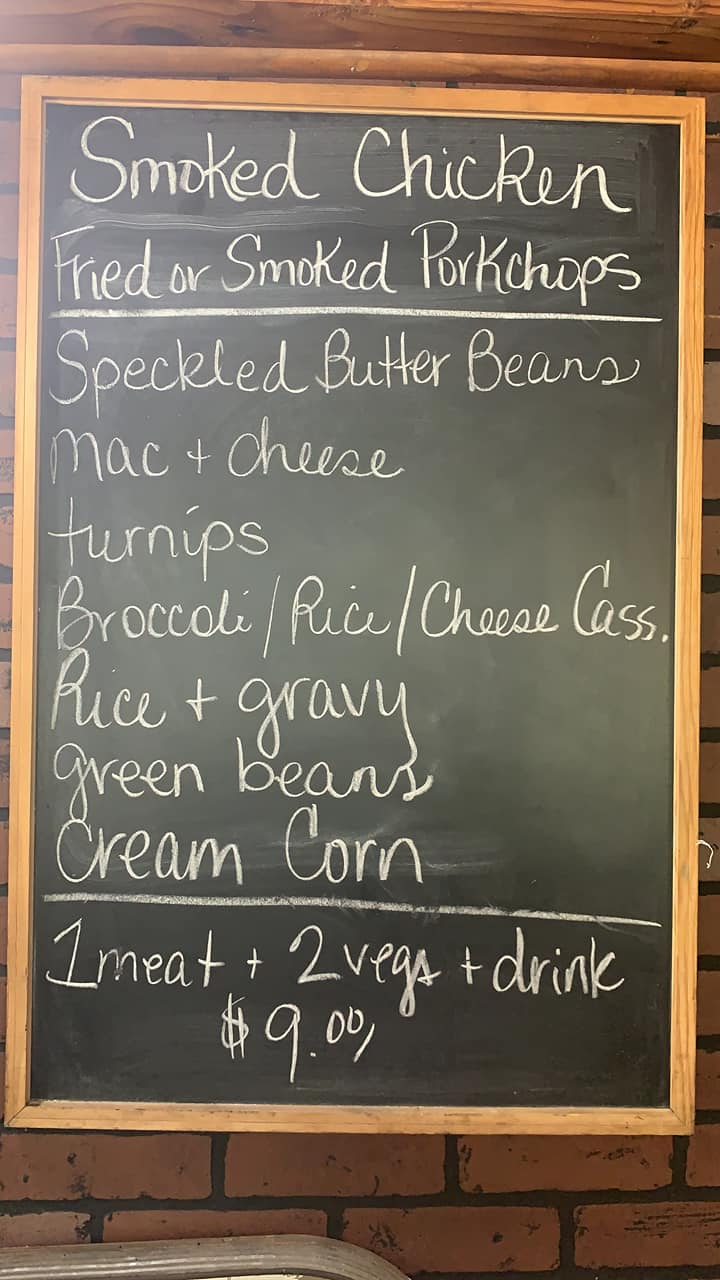 Smoked Chicken
Fried or Smoked Porkchops
Speckled Butter Beans
Mac + cheese
turnips
Broccoli/Rice/Cheese Cass.
Rice + gravy
green beans
Cream Corn
1 meat + 2 vegs + drink
$9.00